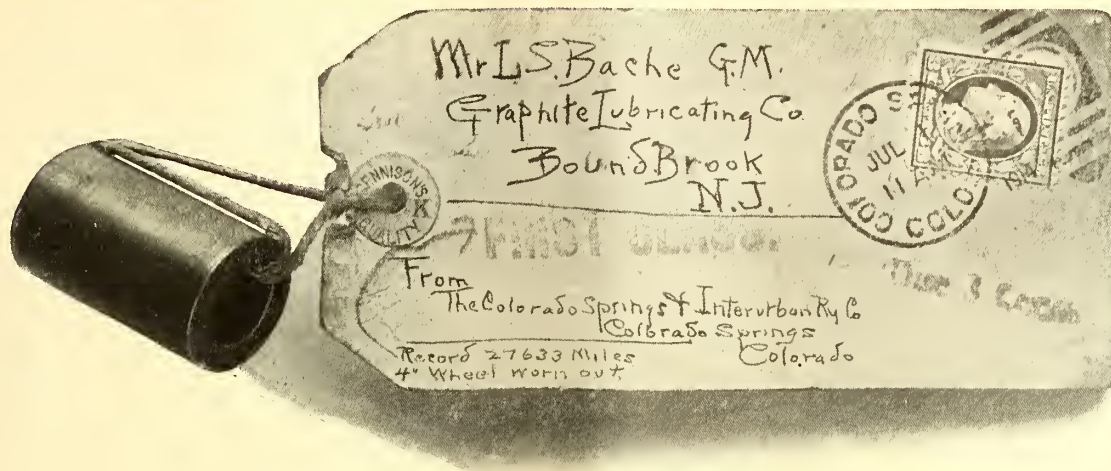 Mr L.S. Bache G.M.
Graphite Lubricating Co.
Bound Brook
N.J.
DENNISON'S
QUALITY
COLORADO
COLO
JUL
11
FIRST CLASS.
Due 3 Cents
From
The Colorado Springs & Interurban Ry Co
Colorado Springs
Colorado
Record 27633 Miles
4" Wheel worn out.